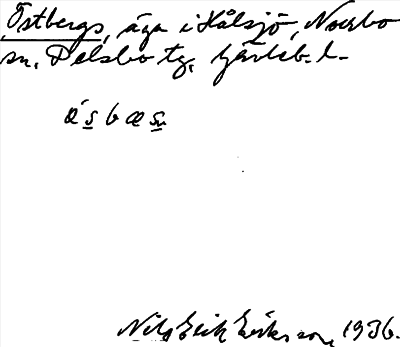 Östbergs, äga i Hålsjö, Norrbo
sn, Delsbo tg, Gävleb. l.
ǿs̲ b æ s̲
Nils Erik Eriksson, 1936.